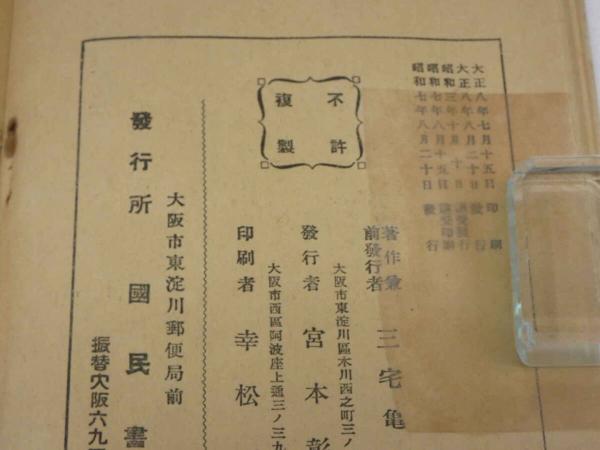 大正八年七月十五日 印刷
大正八年八月二十日 發行
昭和三年十月十日
昭和七年八月十五日
昭和七年八月二十日 發行
不許
複製
著作兼
前發行者 三宅亀
大阪市東淀川區木川西之町三ノ
發行者 宮本彰
大阪市西區阿波座上通三ノ三九
印刷者 幸松
大阪市東淀川郵便局前
發行所 國民書
振替大阪六九